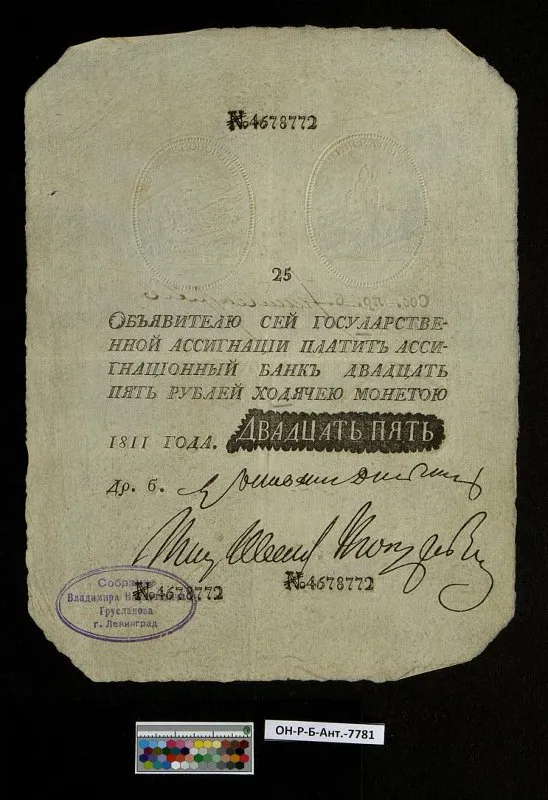 №4678772
25
ОБЪЯВИТЕЛЮ СЕЙ ГОСУДАРСТВЕ-
ННОЙ АССИГНАЦІИ ПЛАТИТЪ АССИ-
ГНАЦІОННЫЙ БАНКЪ ДВАДЦАТЬ
ПЯТЬ РУБЛЕЙ ХОДЯЧЕЮ МОНЕТОЮ
1811 ГОДА. ДВАДЦАТЬ ПЯТЬ
Др. б.
№4678772 №4678772
Собрание
Владимира
Грусланова
г. Ленинград
ОН-Р-Б-Ант.-7781